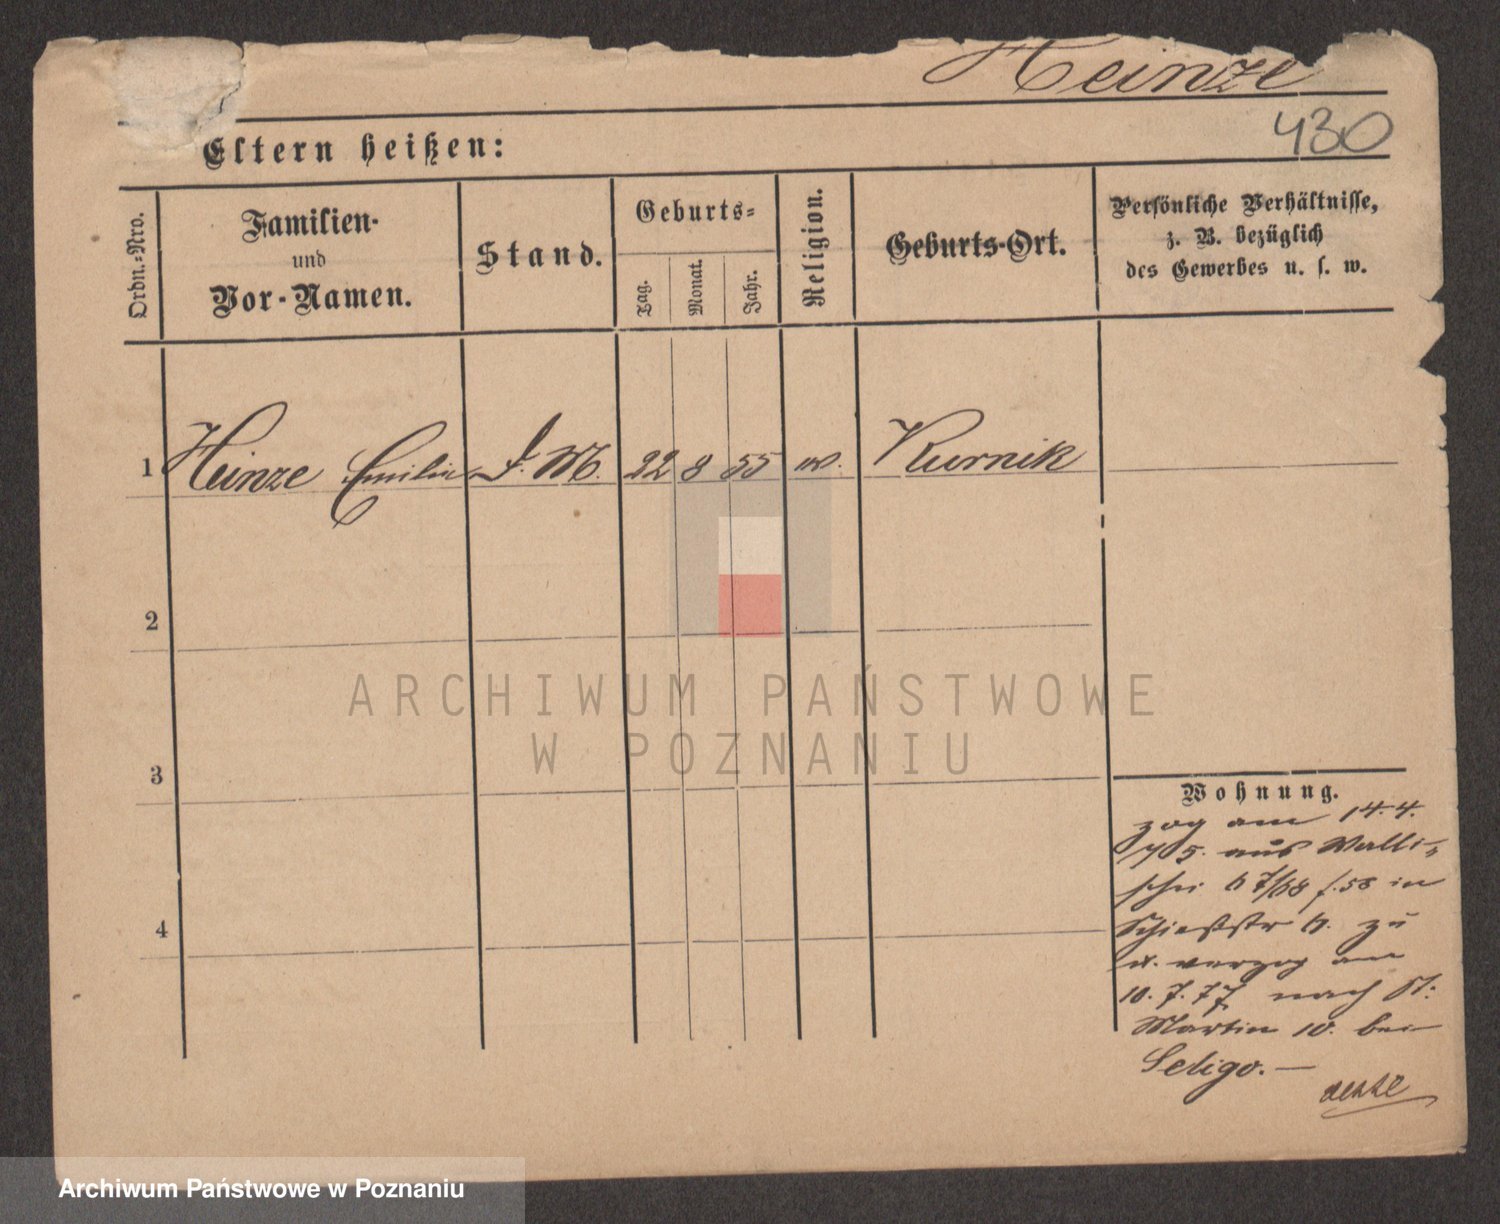 Heinze
430
Eltern heißen:
Ordn.-Nro.
Familien-
und
Vor-Namen.
Stand.
Geburts-
Tag.
Monat.
Jahr.
Religion.
Geburts-Ort.
Persönliche Verhältnisse,
z. B. bezüglich
des Gewerbes u. s. w.
1 Heinze Emilie 22 8 55 Kurnik
2
3
4
ARCHIWUM PAŃSTWOWE
W POZNANIU
Wohnung.
zog am 14.4.
75. aus Walli-
schei 67/68 in
Schießstr 6. zu
u. verzog am
10.7.77 nach St.
Martin 10. bei
Seligo.—
Archiwum Państwowe w Poznaniu